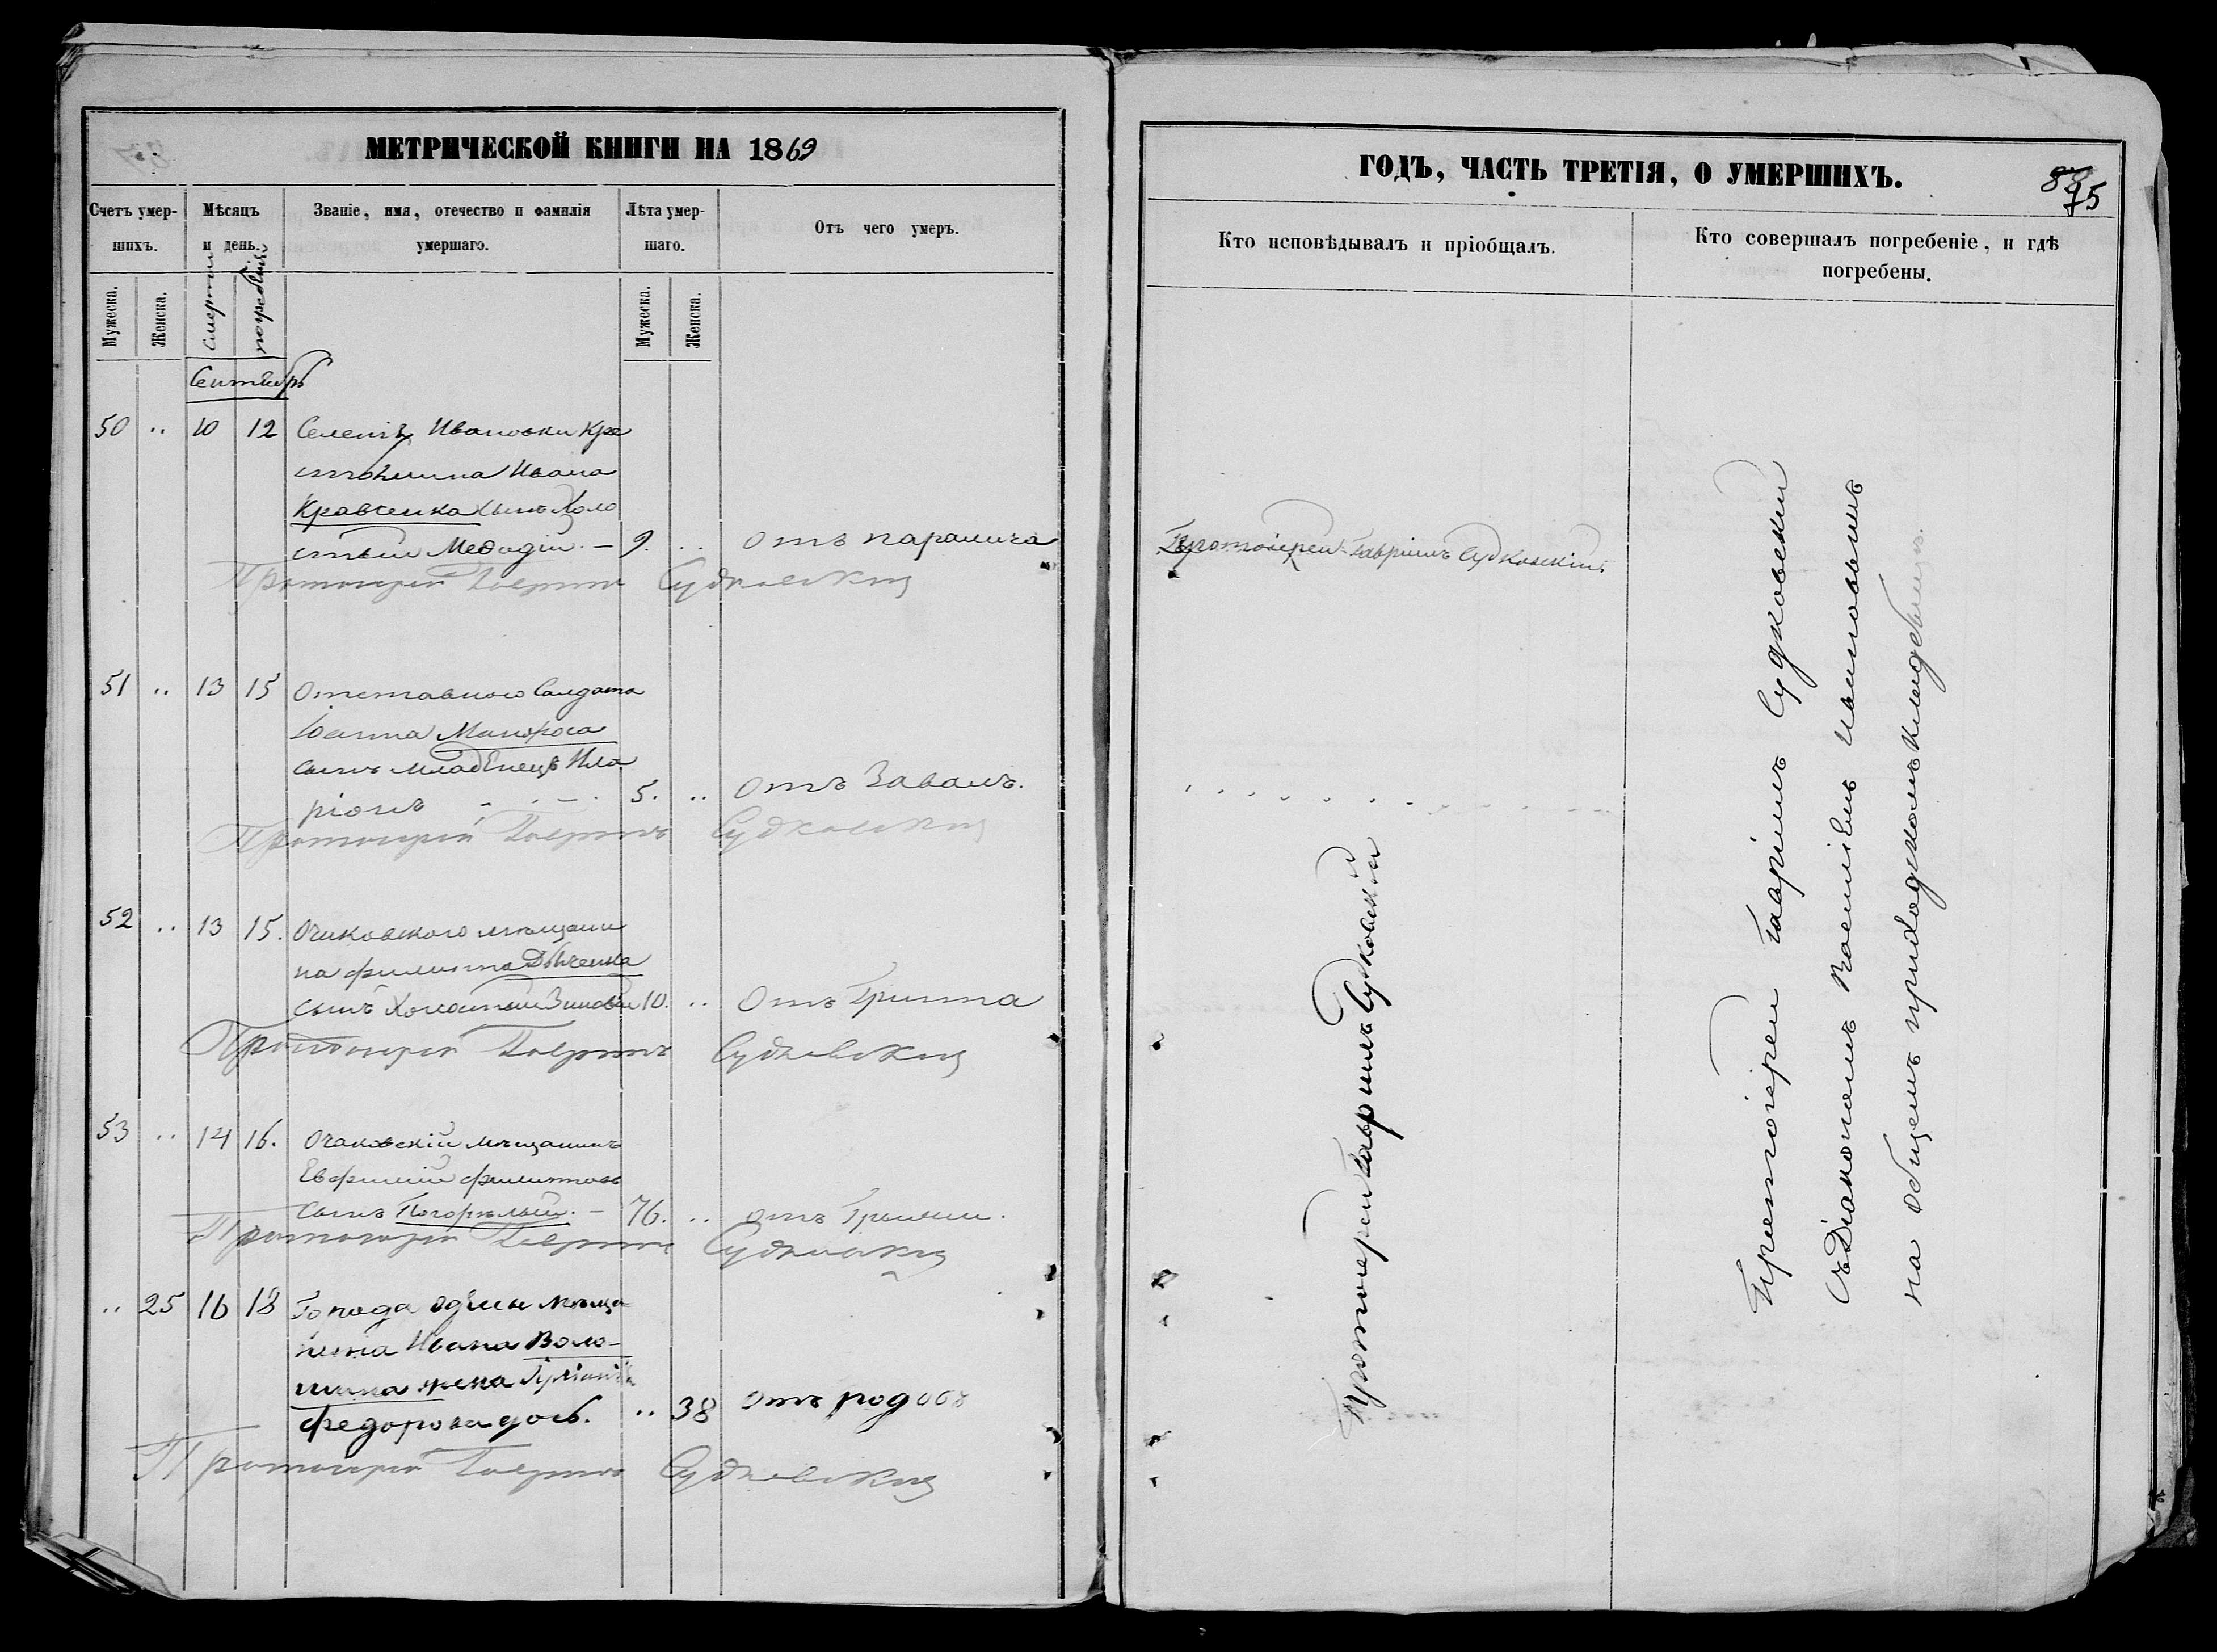 МЕТРИЧЕСКОЙ КНИГИ НА 1869
Счетъ умер-
шихъ.
Мѣсяцъ
и день.
Званіе, имя, отечество и фамилія
умершаго.
Лѣта умер-
шаго.
Отъ чего умеръ.
Мужеска.
Женска.
Смерти
погребенія
Мужеска.
Женска.
Сентябрь
50 .. 10 12 Селенія Ивановки Кре
стьянина Ивана
Кравченка сынъ Холо
стый Меѳодій. — 9. .. Отъ паралича
Протоіерей Гавріилъ Судковскій
51 .. 13 15 Отставного Солдата
Іоанна
сынъ младенецъ Ила
ріонъ 5. .. Отъ Заваловъ.
Протоіерей Гавріилъ Судковскій
52 .. 13 15. Очаковского мѣщани
на Филиппа
сынъ Холостый Зиновій 10. .. Отъ Гриппа
Протоіерей Гавріилъ Судковскій
53 .. 14 16. Очаковскій мѣщанинъ
Евфимій Филипповъ
сынъ Погорѣлый. — 76. .. отъ Грыжи.
Протоіерей Гавріилъ Судковскій
.. 25 16 18 Города Одессы мѣща
нина Ивана Воло-
шина жена
Федорова дочь. .. 38 Отъ родовъ
Протоіерей Гавріилъ Судковскій
ГОДЪ, ЧАСТЬ ТРЕТІЯ, О УМЕРШИХЪ.
75
Кто исповѣдывалъ и пріобщалъ.
Кто совершалъ погребеніе, и гдѣ
погребены.
Протоіерей Гавріилъ Судковскій
Протоіерей Гавріилъ Судковскій
Протоіерей Гавріилъ Судковскій
съ Діакономъ Василіемъ
на общемъ приходскомъ кладбищѣ.